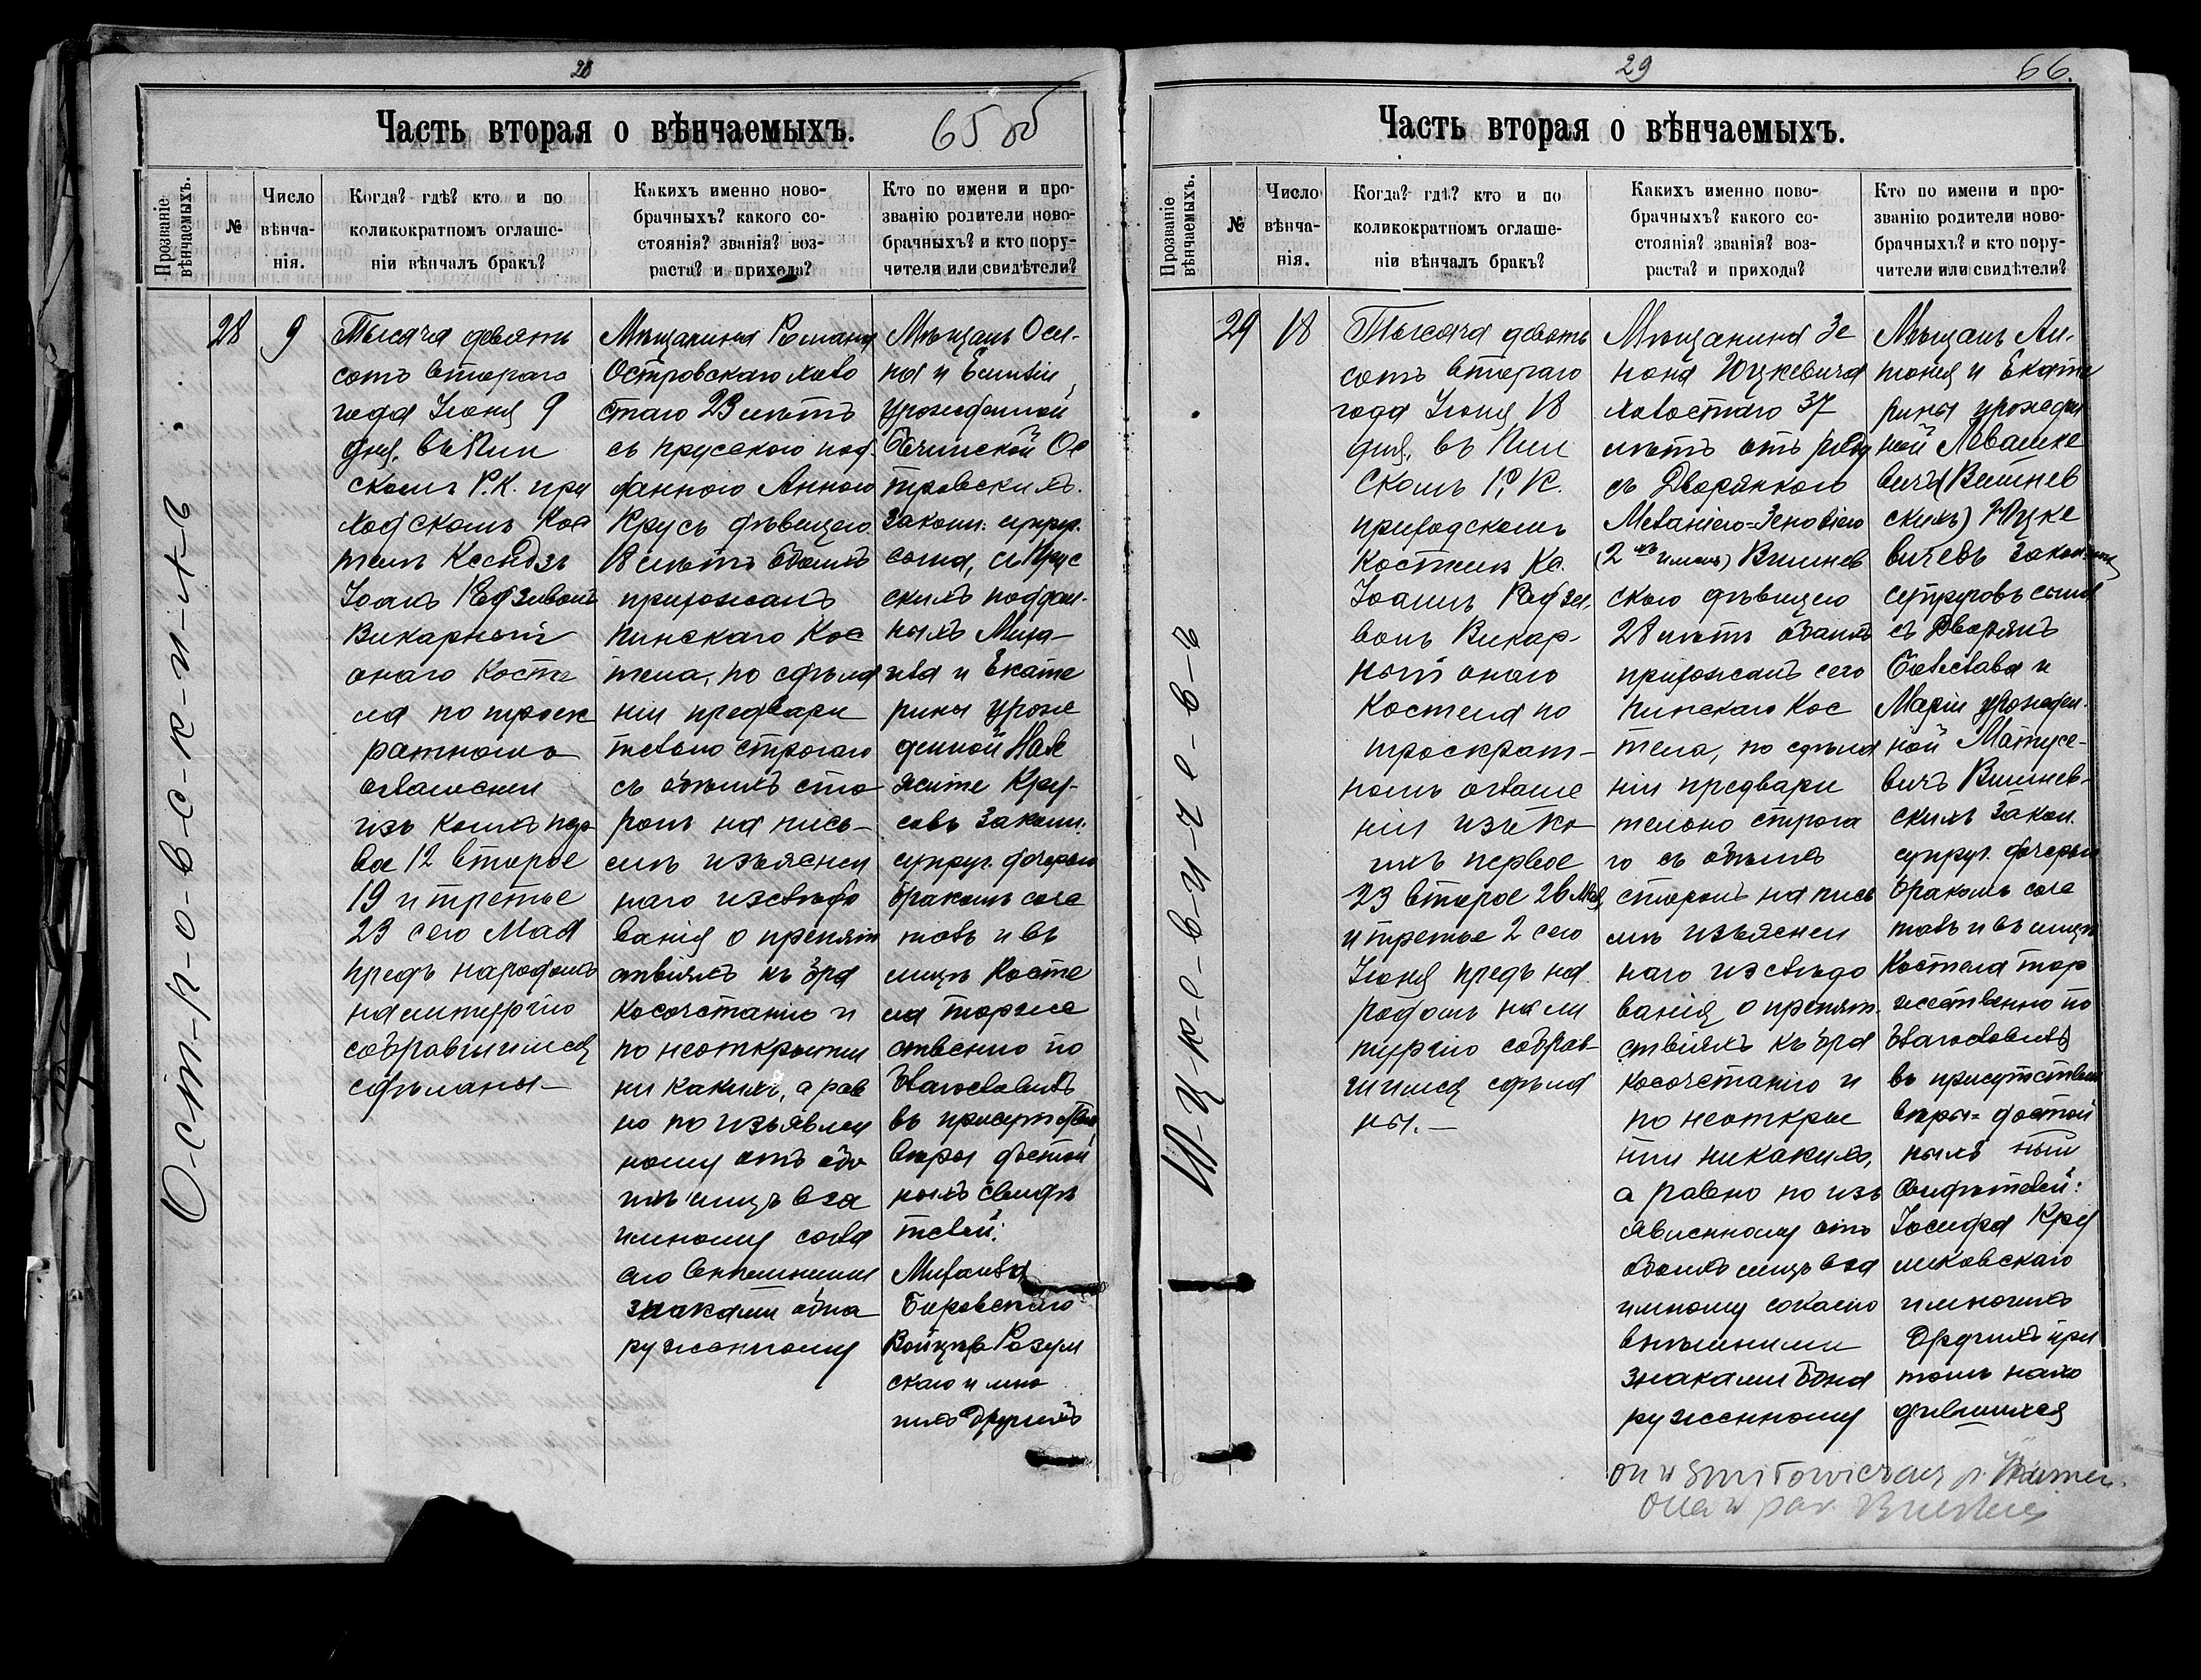 28
Часть вторая о вѣнчаемыхъ.
65 об
Прозваніе вѣнчаемыхъ.
№
Число вѣнча-
нія.
Когда? гдѣ? кто и по
коликократномъ оглаше-
ніи вѣнчалъ бракъ?
Какихъ именно ново-
брачныхъ? какого со-
стоянія? званія? воз-
раста? и прихода?
Кто по имени и про-
званію родители ново-
брачныхъ? и кто пору-
чители или свидѣтели?
О-с-т-р-о-в-с-к-и-х-ъ
28
9
Тысяча девять
сотъ втораго
года Іюня 9
дня, въ Пин
скомъ Р.К. при
ходскомъ Кос
телѣ Ксендзъ
Іоанъ Радзивонъ
Викарный
онаго Косте
ла по троек
ратномъ
оглашеніи
изъ коихъ пер
вое 12 второе
19 и третье
23 сего Мая
предъ народомъ
на литургію
собравшимся
сдѣланы —
Мѣщанина Романа
Островскаго холо
стаго 23 лѣтъ
съ прусскою под
данною Анною
Крусъ дѣвицею
18 лѣтъ обоихъ
прихожанъ
Пинскаго Кос
тела, по сдѣла
ніи предвари
тельно строгаго
съ обѣихъ сто
ронъ на пись-
мѣ изъяснен
наго изслѣдо
ванія о препят
ствіяхъ къ бра
косочетанію и
по неоткрытіи
ни какихъ, а рав
но по изъявлен
ному отъ обо
ихъ лицъ вза
имному согла
сію внѣшними
знаками обна
руженному
Мѣщанъ Оси-
па и Емиліи
урожденной
Ос
тровскихъ
законн. супруг.
сына, съ Прус
скихъ поддан-
ныхъ Миха-
ила и Екате
рины урож
денной
Кру-
совъ законн.
супруг. дочерью
бракомъ соче
талъ и въ
лицѣ Косте
ла торже
ственно по
благословилъ
въ присутствіи
вѣры достой
ныхъ свидѣ
телей:
Михаила
Боровскаго
Войцѣха Розум
скаго и мно
гихъ другихъ
29
66.
Часть вторая о вѣнчаемыхъ.
Прозваніе вѣнчаемыхъ.
№
Число вѣнча-
нія.
Когда? гдѣ? кто и по
коликократномъ оглаше-
ніи вѣнчалъ бракъ?
Какихъ именно ново-
брачныхъ? какого со-
стоянія? званія? воз-
раста? и прихода?
Кто по имени и про-
званію родители ново-
брачныхъ? и кто пору-
чители или свидѣтели?
Ю-ц-к-е-в-и-ч-е-в-ъ
29
18
Тысяча девять
сотъ втораго
года Іюня 18
дня, въ Пин
скомъ Р. К.
приходскомъ
Костелѣ Кс.
Іоаннъ Радзи
вонъ Викар-
ный онаго
Костела по
троекрат-
номъ оглаше
ніи изъ ко
ихъ первое
23 второе 26 Мая
и третье 2 сего
Іюня предъ на
родомъ на ли
тургію собрав
шимся сдѣла
ны. —
Мѣщанина Зе
нона Юцкевича
холостаго 37
лѣтъ отъ роду
съ Дворянкою
Меланіею-Зеновіею
(2 хъ именъ) Вишнев
скою дѣвицею
28 лѣтъ обоихъ
прихожанъ сего
Пинскаго Кос
тела, по сдѣла
ніи предвари
тельно строга
го съ обѣихъ
сторонъ на пись
мѣ изъяснен
наго изслѣдо
ванія о препят
ствіяхъ къ бра
косочетанію и
по неоткры
тіи никакихъ,
а равно по изъ
явленному отъ
обоихъ лицъ вза
имному согласію
внѣшними
знаками обна
руженному
Мѣщанъ Ан-
тонія и Екате
рины урожден
ной Левашке
вичъ (Вишнев
скихъ) Юцке
вичевъ законныхъ
супруговъ сына
съ Дворянъ
Болеслава и
Маріи урожден-
ной Матусе-
вичъ Вишнев-
скихъ закон.
супруг. дочерью
бракомъ соче
талъ и въ лицѣ
Костела тор
жественно по
благословилъ
въ присутствіи
вѣры= достой
ныхъ
свидѣтелей:
Іосифа Кру
ликовскаго
и многихъ
другихъ при
томъ нахо
дившихся
on w Smiłowiczach p.
ona w par.